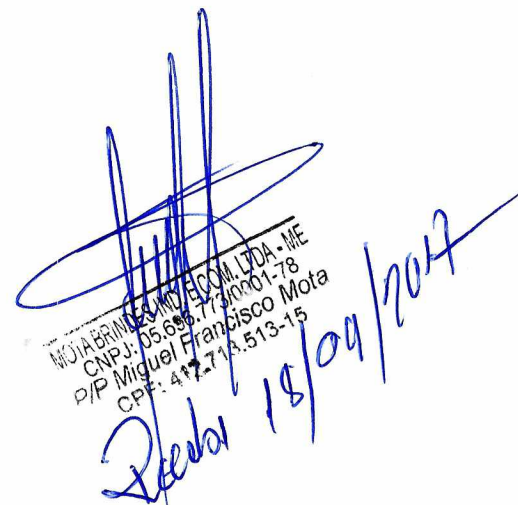 MOTA BRINDES IND. E COM. LTDA - ME
CNPJ: 05.696.773/0001-78
P/P Miguel Francisco Mota
CPF: 417.718.513-15
18/09/2017